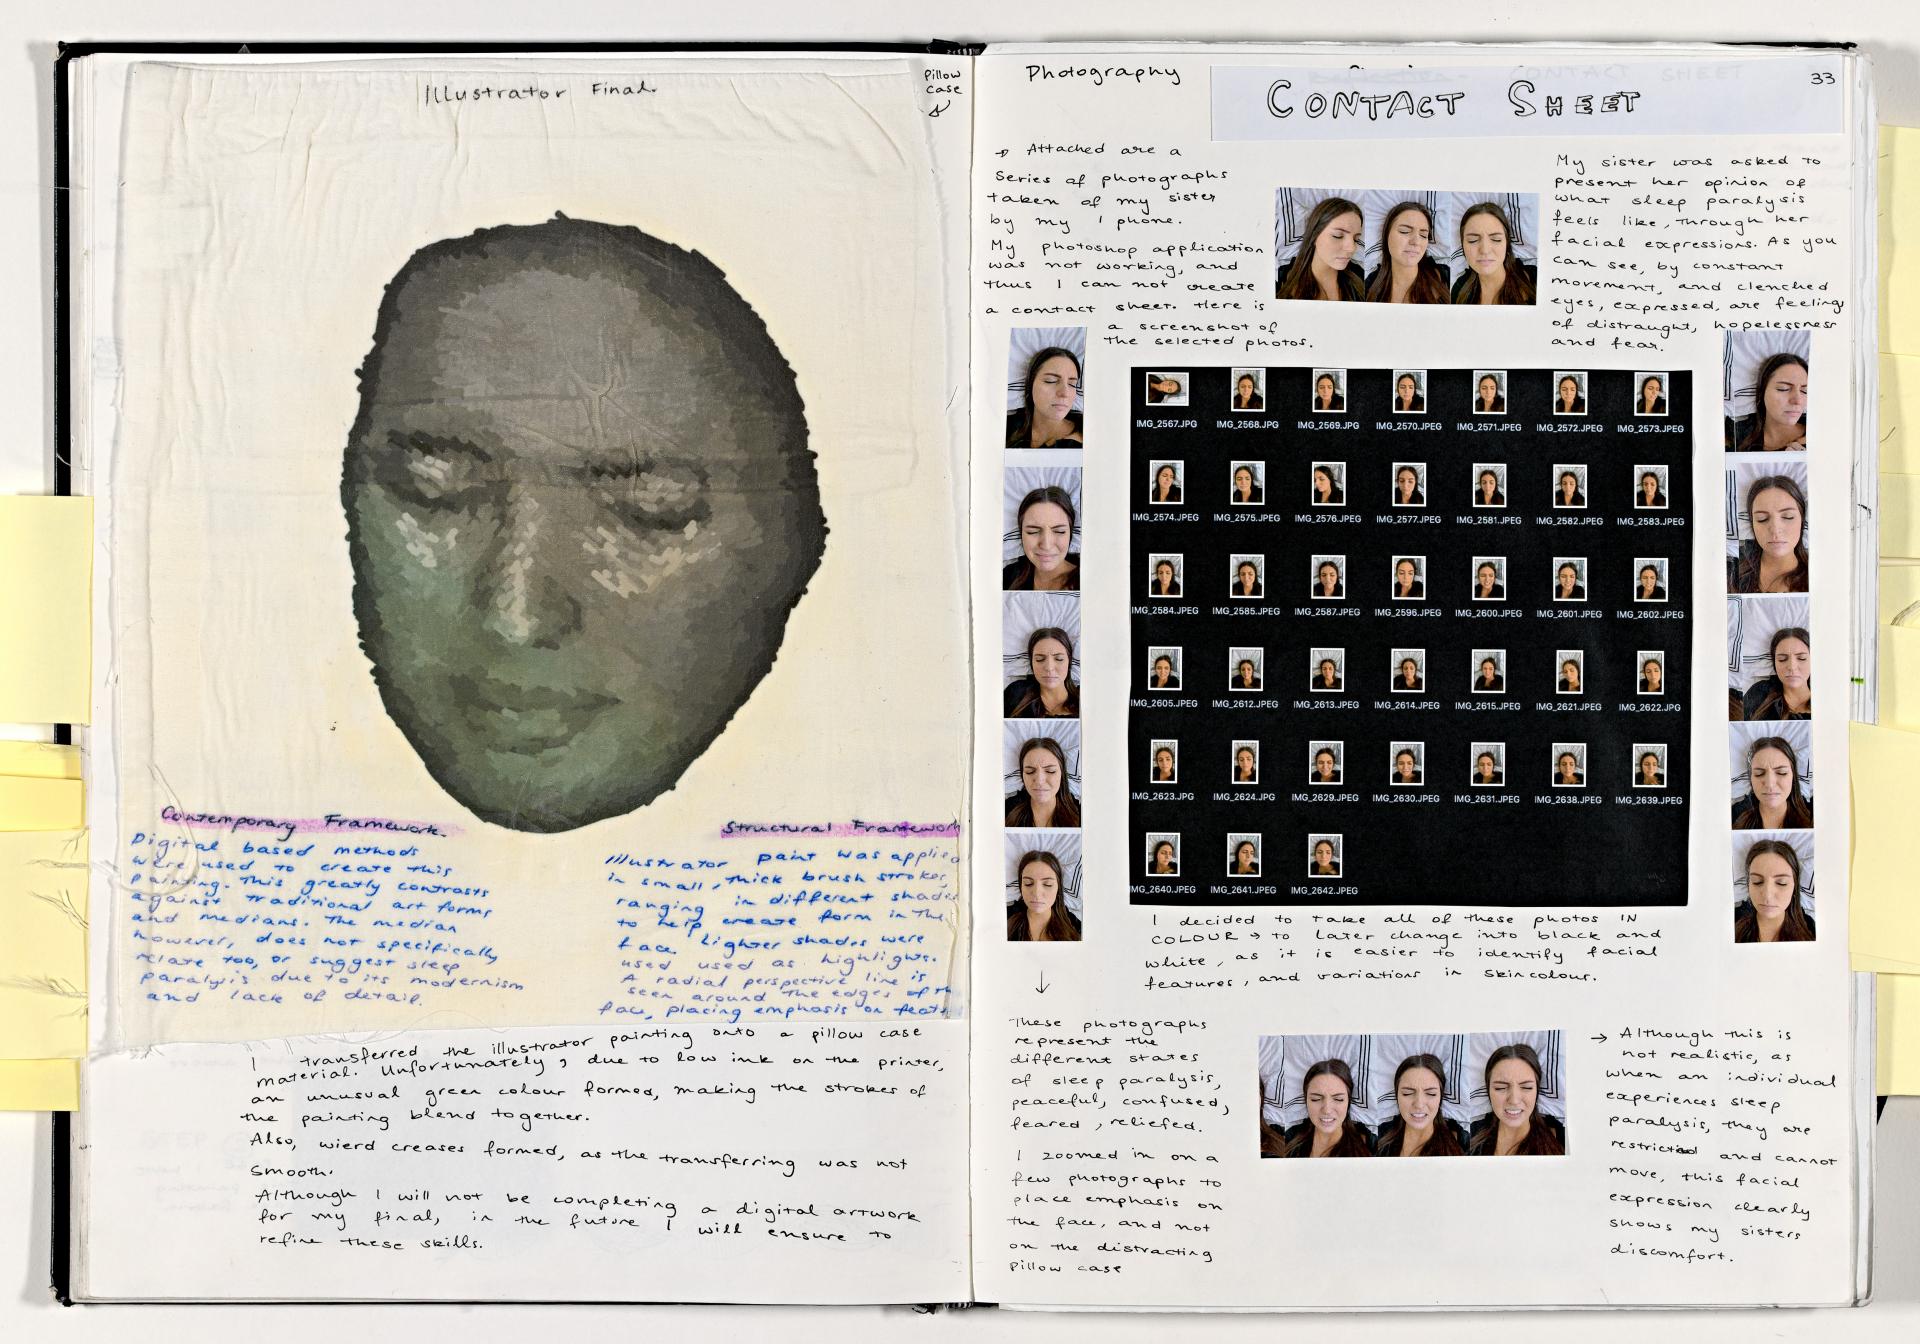 Illustrator Final.
Pillow
case
Contemporary Framework.
Digital based methods
were used to create this
painting. This greatly contrasts
against traditional art forms
and medians. The median
however, does not specifically
relate too, or suggest sleep
paralysis due to its modernism
and lack of detail.
Structural Framework
Illustrator paint was applied
in small, thick brush strokes,
ranging in different shades
to help create form in the
face. Lighter shades were
used used as highlights.
A radial perspective line is
seen around the edges of th
face, placing emphasis on feat
I transferred the illustrator painting onto a pillow case
material. Unfortunately, due to low ink on the printer,
an unusual green colour formed, making the strokes of
the painting blend together.
Also, wierd creases formed, as the transferring was not
smooth.
Although I will not be completing a digital artwork
for my final, in the future I will ensure to
refine these skills.
Photography
CONTACT SHEET
33
→ Attached are a
series of photographs
taken of my sister
by my I phone.
My photoshop application
was not working, and
thus I can not create
a contact sheet. Here is
a screenshot of
the selected photos.
My sister was asked to
present her opinion of
what sleep paralysis
feels like, through her
facial expressions. As you
can see, by constant
movement, and clenched
eyes, expressed, are feelings
of distraught, hopelessness
and fear.
IMG_2567.JPG IMG_2568.JPG IMG_2569.JPG IMG_2570.JPEG IMG_2571.JPEG IMG_2572.JPEG IMG_2573.JPEG
IMG_2574.JPEG IMG_2575.JPEG IMG_2576.JPEG IMG_2577.JPEG IMG_2581.JPEG IMG_2582.JPEG IMG_2583.JPEG
IMG_2584.JPEG IMG_2585.JPEG IMG_2587.JPEG IMG_2596.JPEG IMG_2600.JPEG IMG_2601.JPEG IMG_2602.JPEG
IMG_2605.JPEG IMG_2612.JPEG IMG_2613.JPEG IMG_2614.JPEG IMG_2615.JPEG IMG_2621.JPEG IMG_2622.JPEG
IMG_2623.JPG IMG_2624.JPG IMG_2629.JPEG IMG_2630.JPEG IMG_2631.JPEG IMG_2638.JPEG IMG_2639.JPEG
IMG_2640.JPEG IMG_2641.JPEG IMG_2642.JPEG
I decided to take all of these photos IN
COLOUR → to later change into black and
white, as it is easier to identify facial
features, and variations in skin colour.
These photographs
represent the
different states
of sleep paralysis,
peaceful, confused,
feared, reliefed.
I zoomed in on a
few photographs to
place emphasis on
the face, and not
on the distracting
pillow case
→ Although this is
not realistic, as
when an individual
experiences sleep
paralysis, they are
restricted and cannot
move, this facial
expression clearly
shows my sisters
discomfort.